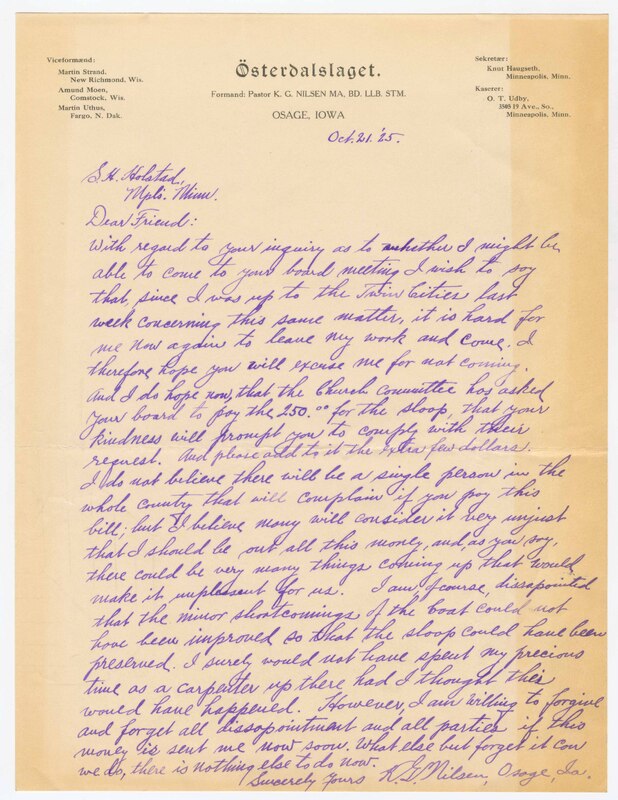 Viceformænd:
Martin Strand,
New Richmond, Wis.
Amund Moen,
Comstock, Wis.
Martin Uthus,
Fargo, N. Dak.
Österdalslaget.
Formand: Pastor K. G. NILSEN MA, BD. LLB. STM.
OSAGE, IOWA
Sekretær:
Knut Haugseth,
Minneapolis, Minn.
Kaserer:
O. T. Udby,
3505 19 Ave., So.,
Minneapolis, Minn.
Oct. 21. '25.
S. H. Holstad,
Mpls. Minn.
Dear Friend:
With regard to your inquiry as to whether I might be
able to come to your board meeting I wish to say
that, since I was up to the Twin Cities last
week concerning this same matter, it is hard for
me now again to leave my work and come. I
therefore hope you will excuse me for not coming.
And I do hope now, that the Church Committee has asked
your board to pay the 250.00 for the sloop, that your
kindness will prompt you to comply with their
request. And please add to it the extra few dollars.
I do not believe there will be a single person in the
whole country that will complain if you pay this
bill; but I believe many will consider it very unjust
that I should be out all this money, and as you say,
there could be very many things coming up that would
make it unplesent for us. I am, of course, dissapointed
that the minor shortcomings of the boat could not
have been improved so that the sloop could have been
preserved. I surely would not have spent my precious
time as a carpenter up there had I thought this
would have happened. However, I am willing to forgive
and forget all dissapointment and all parties if this
money is sent me now soon. What else but forget it can
we do, there is nothing else to do now.
Sincerely Yours K. G. Nilsen, Osage, Ia.